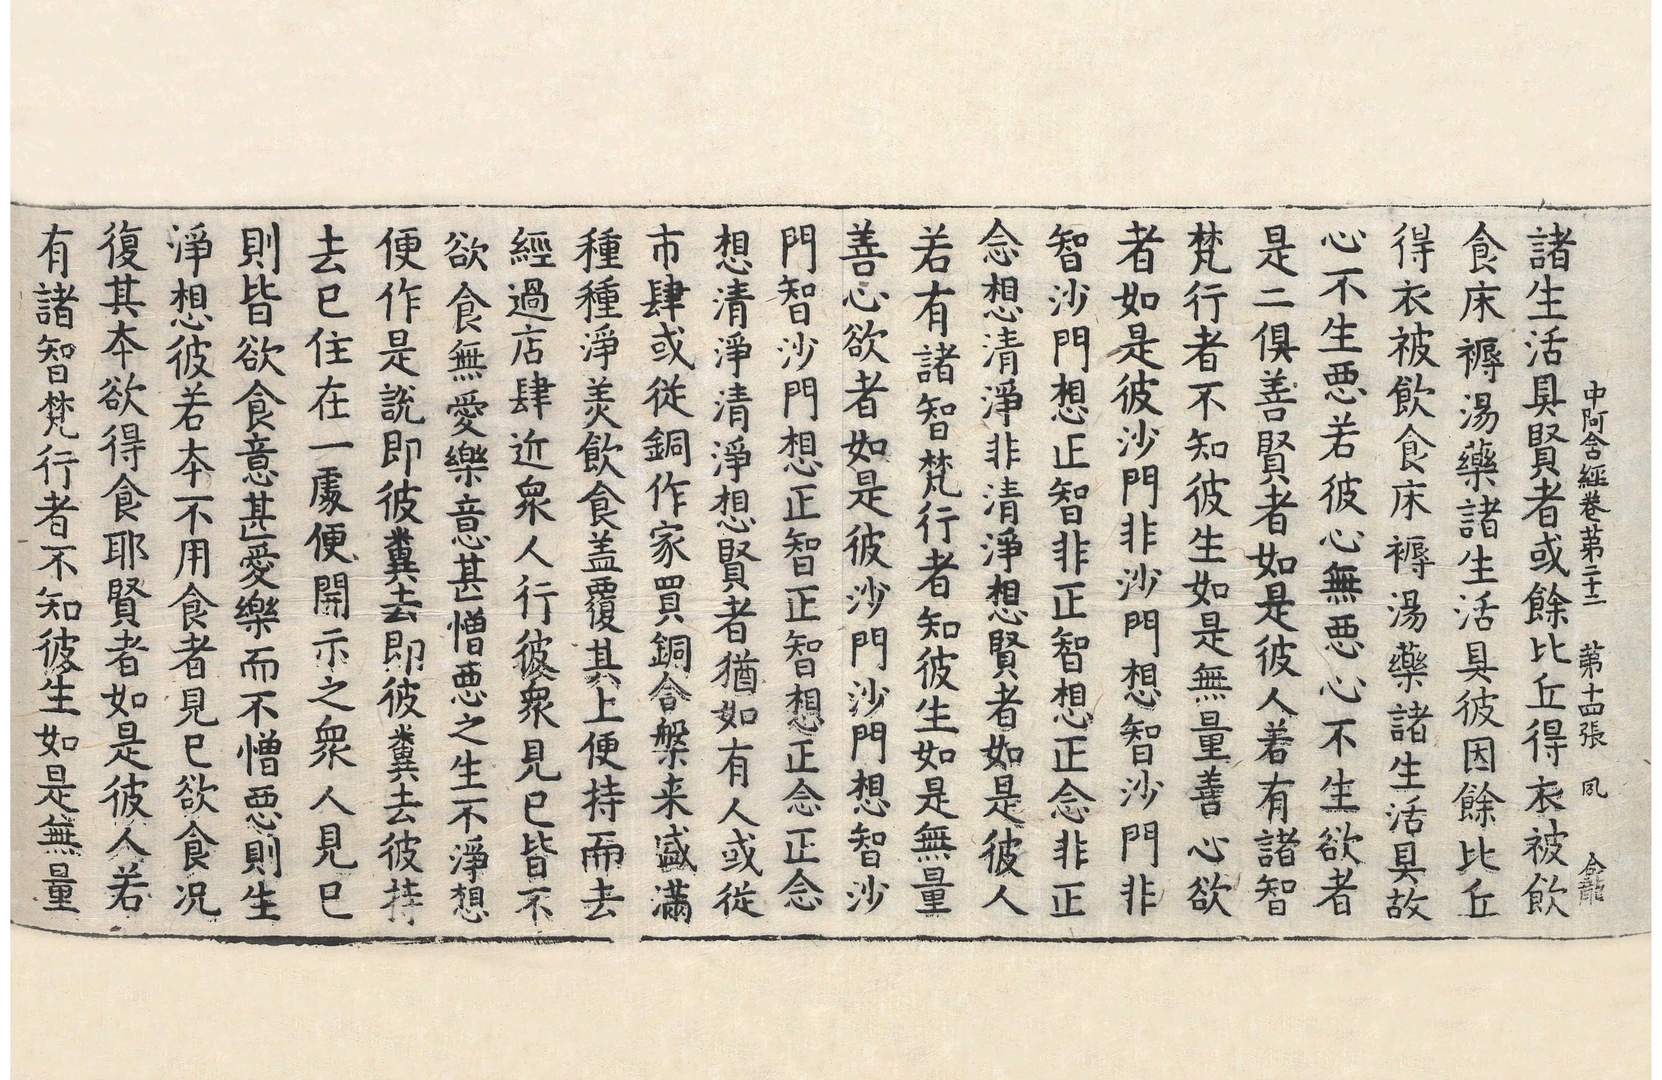 中阿含經卷第二十二　第十四張　夙
諸生活具賢者或餘比丘得衣被飲
食床褥湯藥諸生活具彼因餘比丘
得衣被飲食床褥湯藥諸生活具故
心不生惡若彼心無惡心不生欲者
是二俱善賢者如是彼人若有諸智
梵行者不知彼生如是無量善心欲
者如是彼沙門非沙門想智沙門非
智沙門想正智非正智想正念非正
念想清淨非清淨想賢者如是彼人
若有諸智梵行者知彼生如是無量
善心欲者如是彼沙門沙門想智沙
門智沙門想正智正智想正念正念
想清淨清淨想賢者猶如有人或從
市肆或從銅作家買銅合槃来盛滿
種種淨美飲食盖覆其上便持而去
經過店肆近衆人行彼衆見已皆不
欲食無愛樂意甚憎惡之生不淨想
便作是說即彼糞去即彼糞去彼持
去已住在一處便開示之衆人見已
則皆欲食意甚愛樂而不憎惡則生
淨想彼若本不用食者見已欲食况
復其本欲得食耶賢者如是彼人若
有諸智梵行者不知彼生如是無量